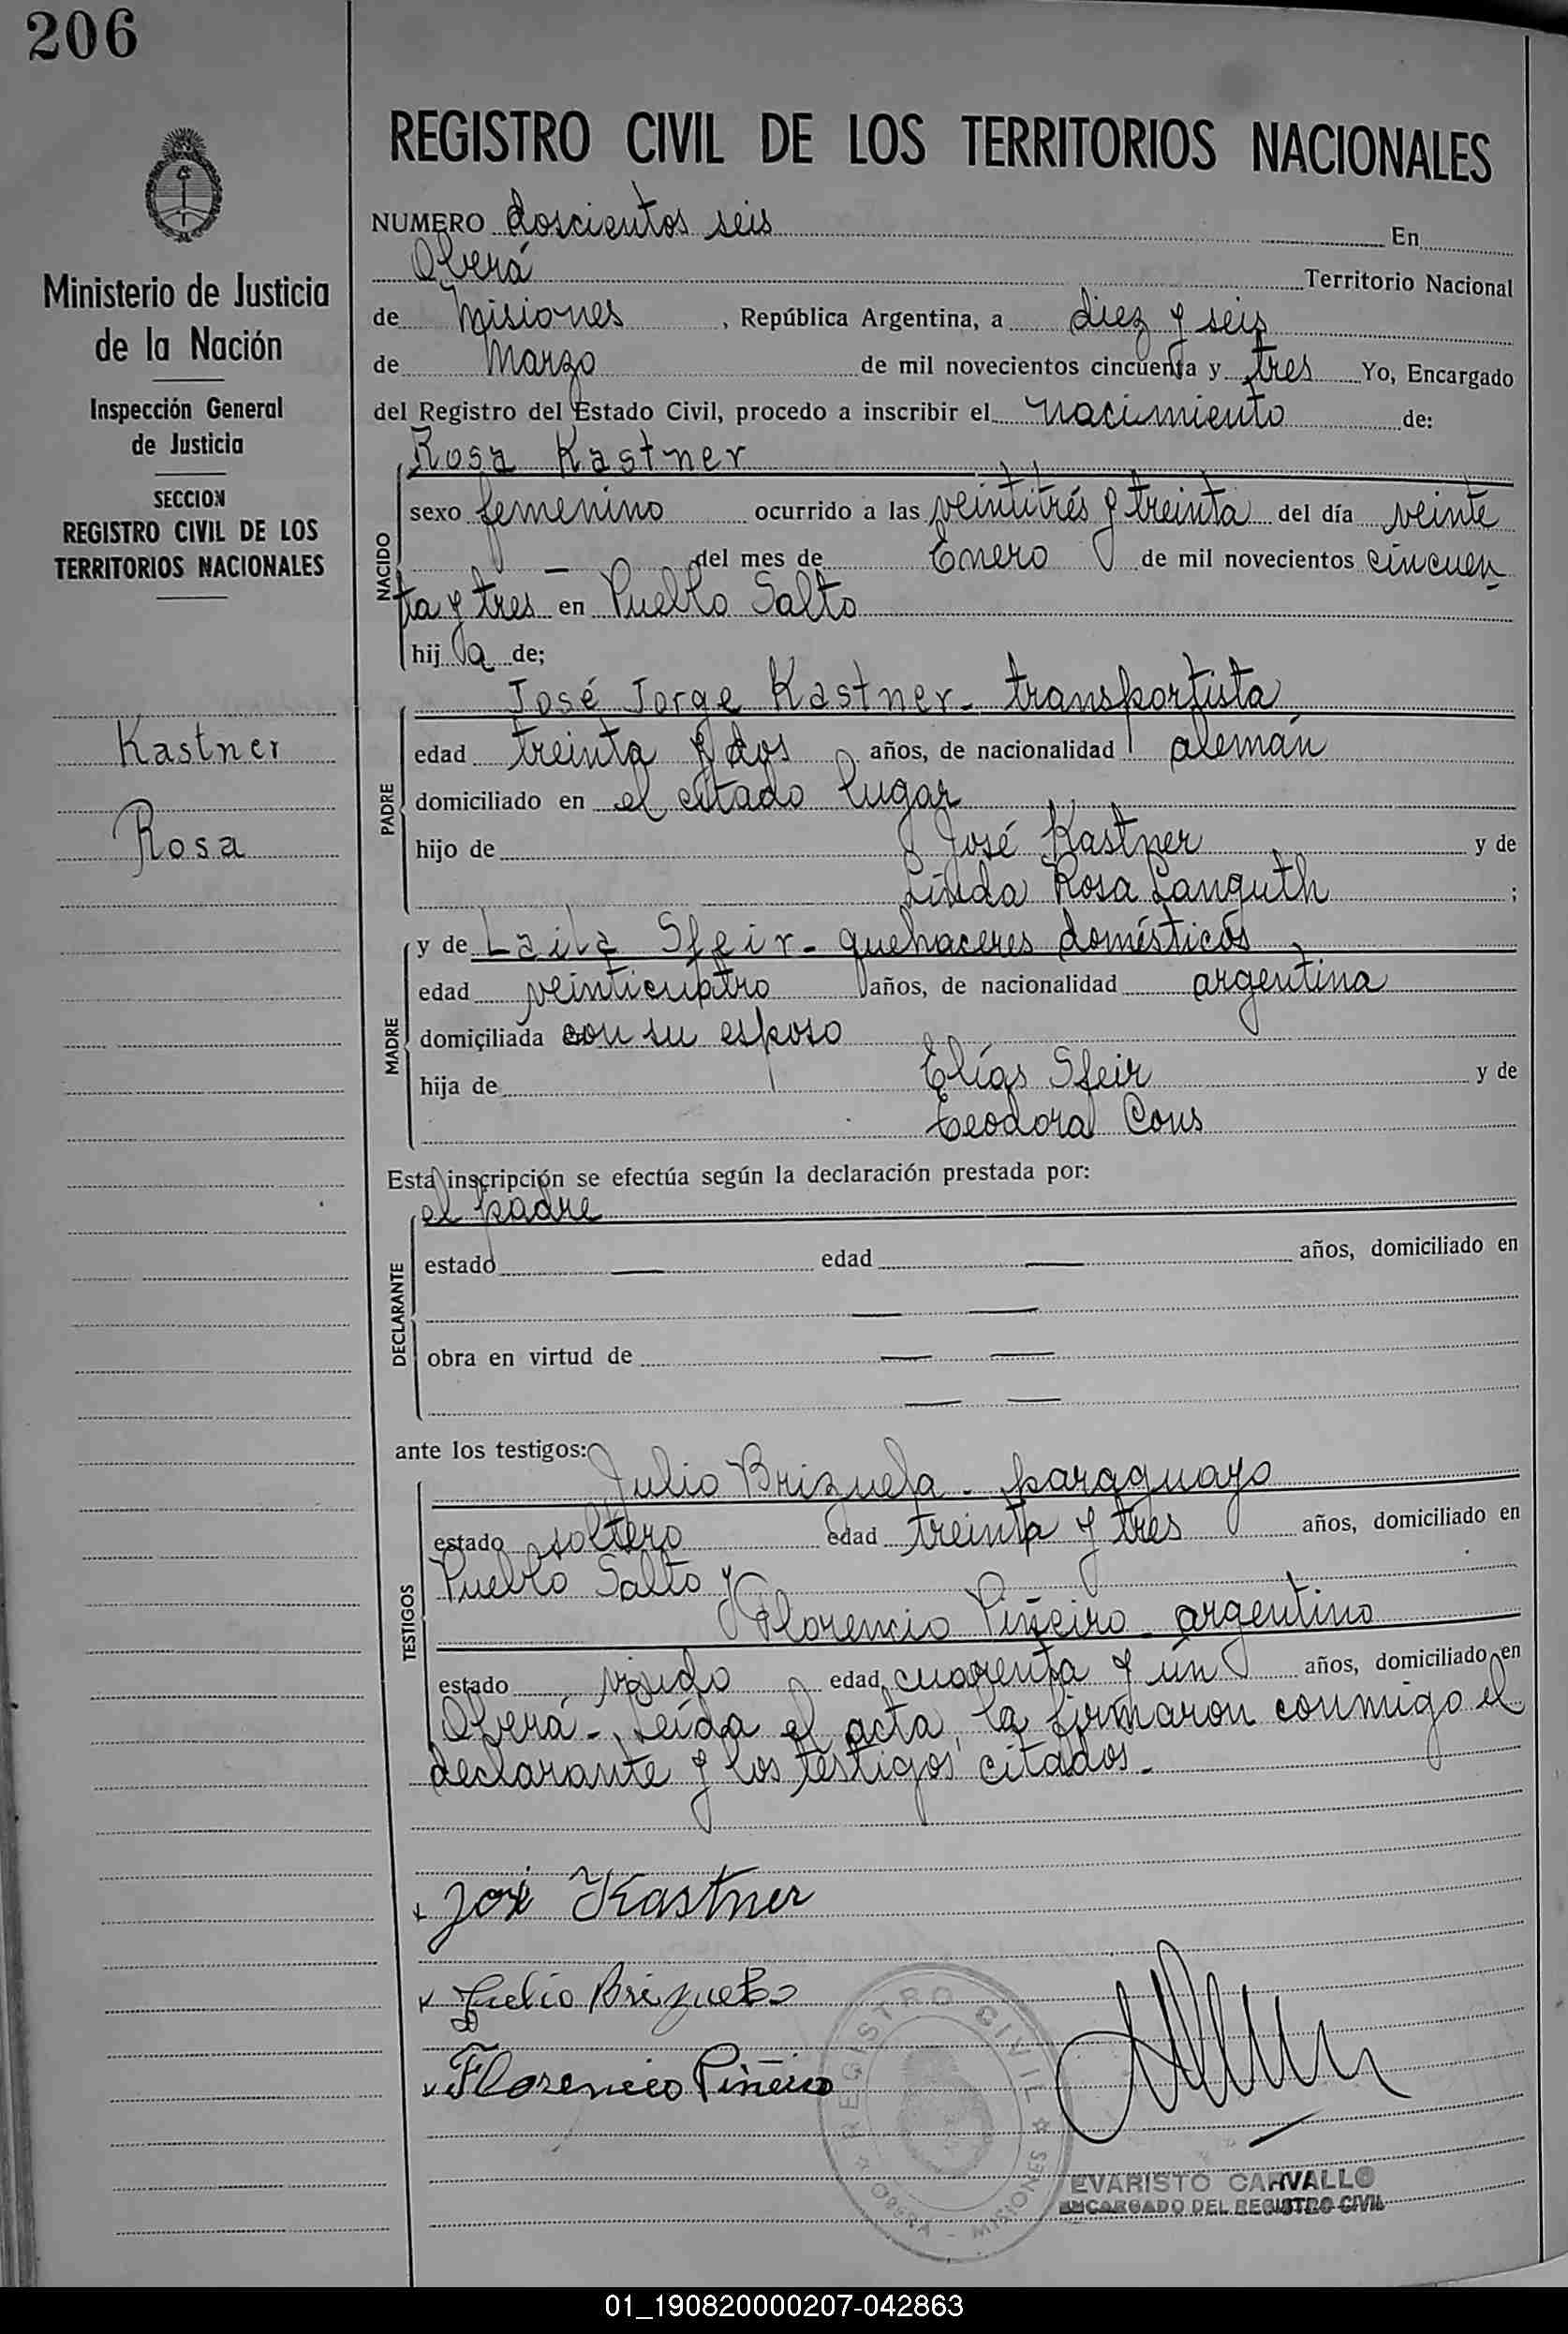 206
Ministerio de Justicia
de la Nación
Inspección General
de Justicia
SECCION
REGISTRO CIVIL DE LOS
TERRITORIOS NACIONALES
Kastner
Rosa
REGISTRO CIVIL DE LOS TERRITORIOS NACIONALES
NUMERO doscientos seis En
Oberá Territorio Nacional
de Misiones, República Argentina, a diez y seis
de Marzo de mil novecientos cincuenta y tres Yo, Encargado
del Registro del Estado Civil, procedo a inscribir el nacimiento de:
Rosa Kastner
NACIDO
sexo femenino ocurrido a las veintitrés y treinta del día veinte
— del mes de Enero de mil novecientos cincuen
ta y tres en Pueblo Salto
hija de;
José Jorge Kastner - transportista
PADRE
edad treinta y dos años, de nacionalidad alemán
domiciliado en el citado lugar
hijo de José Kastner y de
Linda Rosa Languth ;
y de Laila Sfeir - quehaceres domésticos
MADRE
edad veinticuatro años, de nacionalidad argentina
domiciliada con su esposo
hija de Elías Sfeir y de
Teodora Cous
Esta inscripción se efectúa según la declaración prestada por:
el padre
DECLARANTE
estado — edad — años, domiciliado en
— —
obra en virtud de — —
— —
ante los testigos:
Julio Brizuela - paraguayo
TESTIGOS
estado soltero edad treinta y tres años, domiciliado en
Pueblo Salto y
Florencio Piñeiro - argentino
estado viudo edad cuarenta y un años, domiciliado en
Oberá -. Leída el acta, la firmaron conmigo el
declarante y los testigos citados.-
x José Kastner
x Julio Brizuela
x Florencio Piñeiro
REGISTRO CIVIL
OBERA - MISIONES
EVARISTO CARVALLO
ENCARGADO DEL REGISTRO CIVIL
01_190820000207-042863